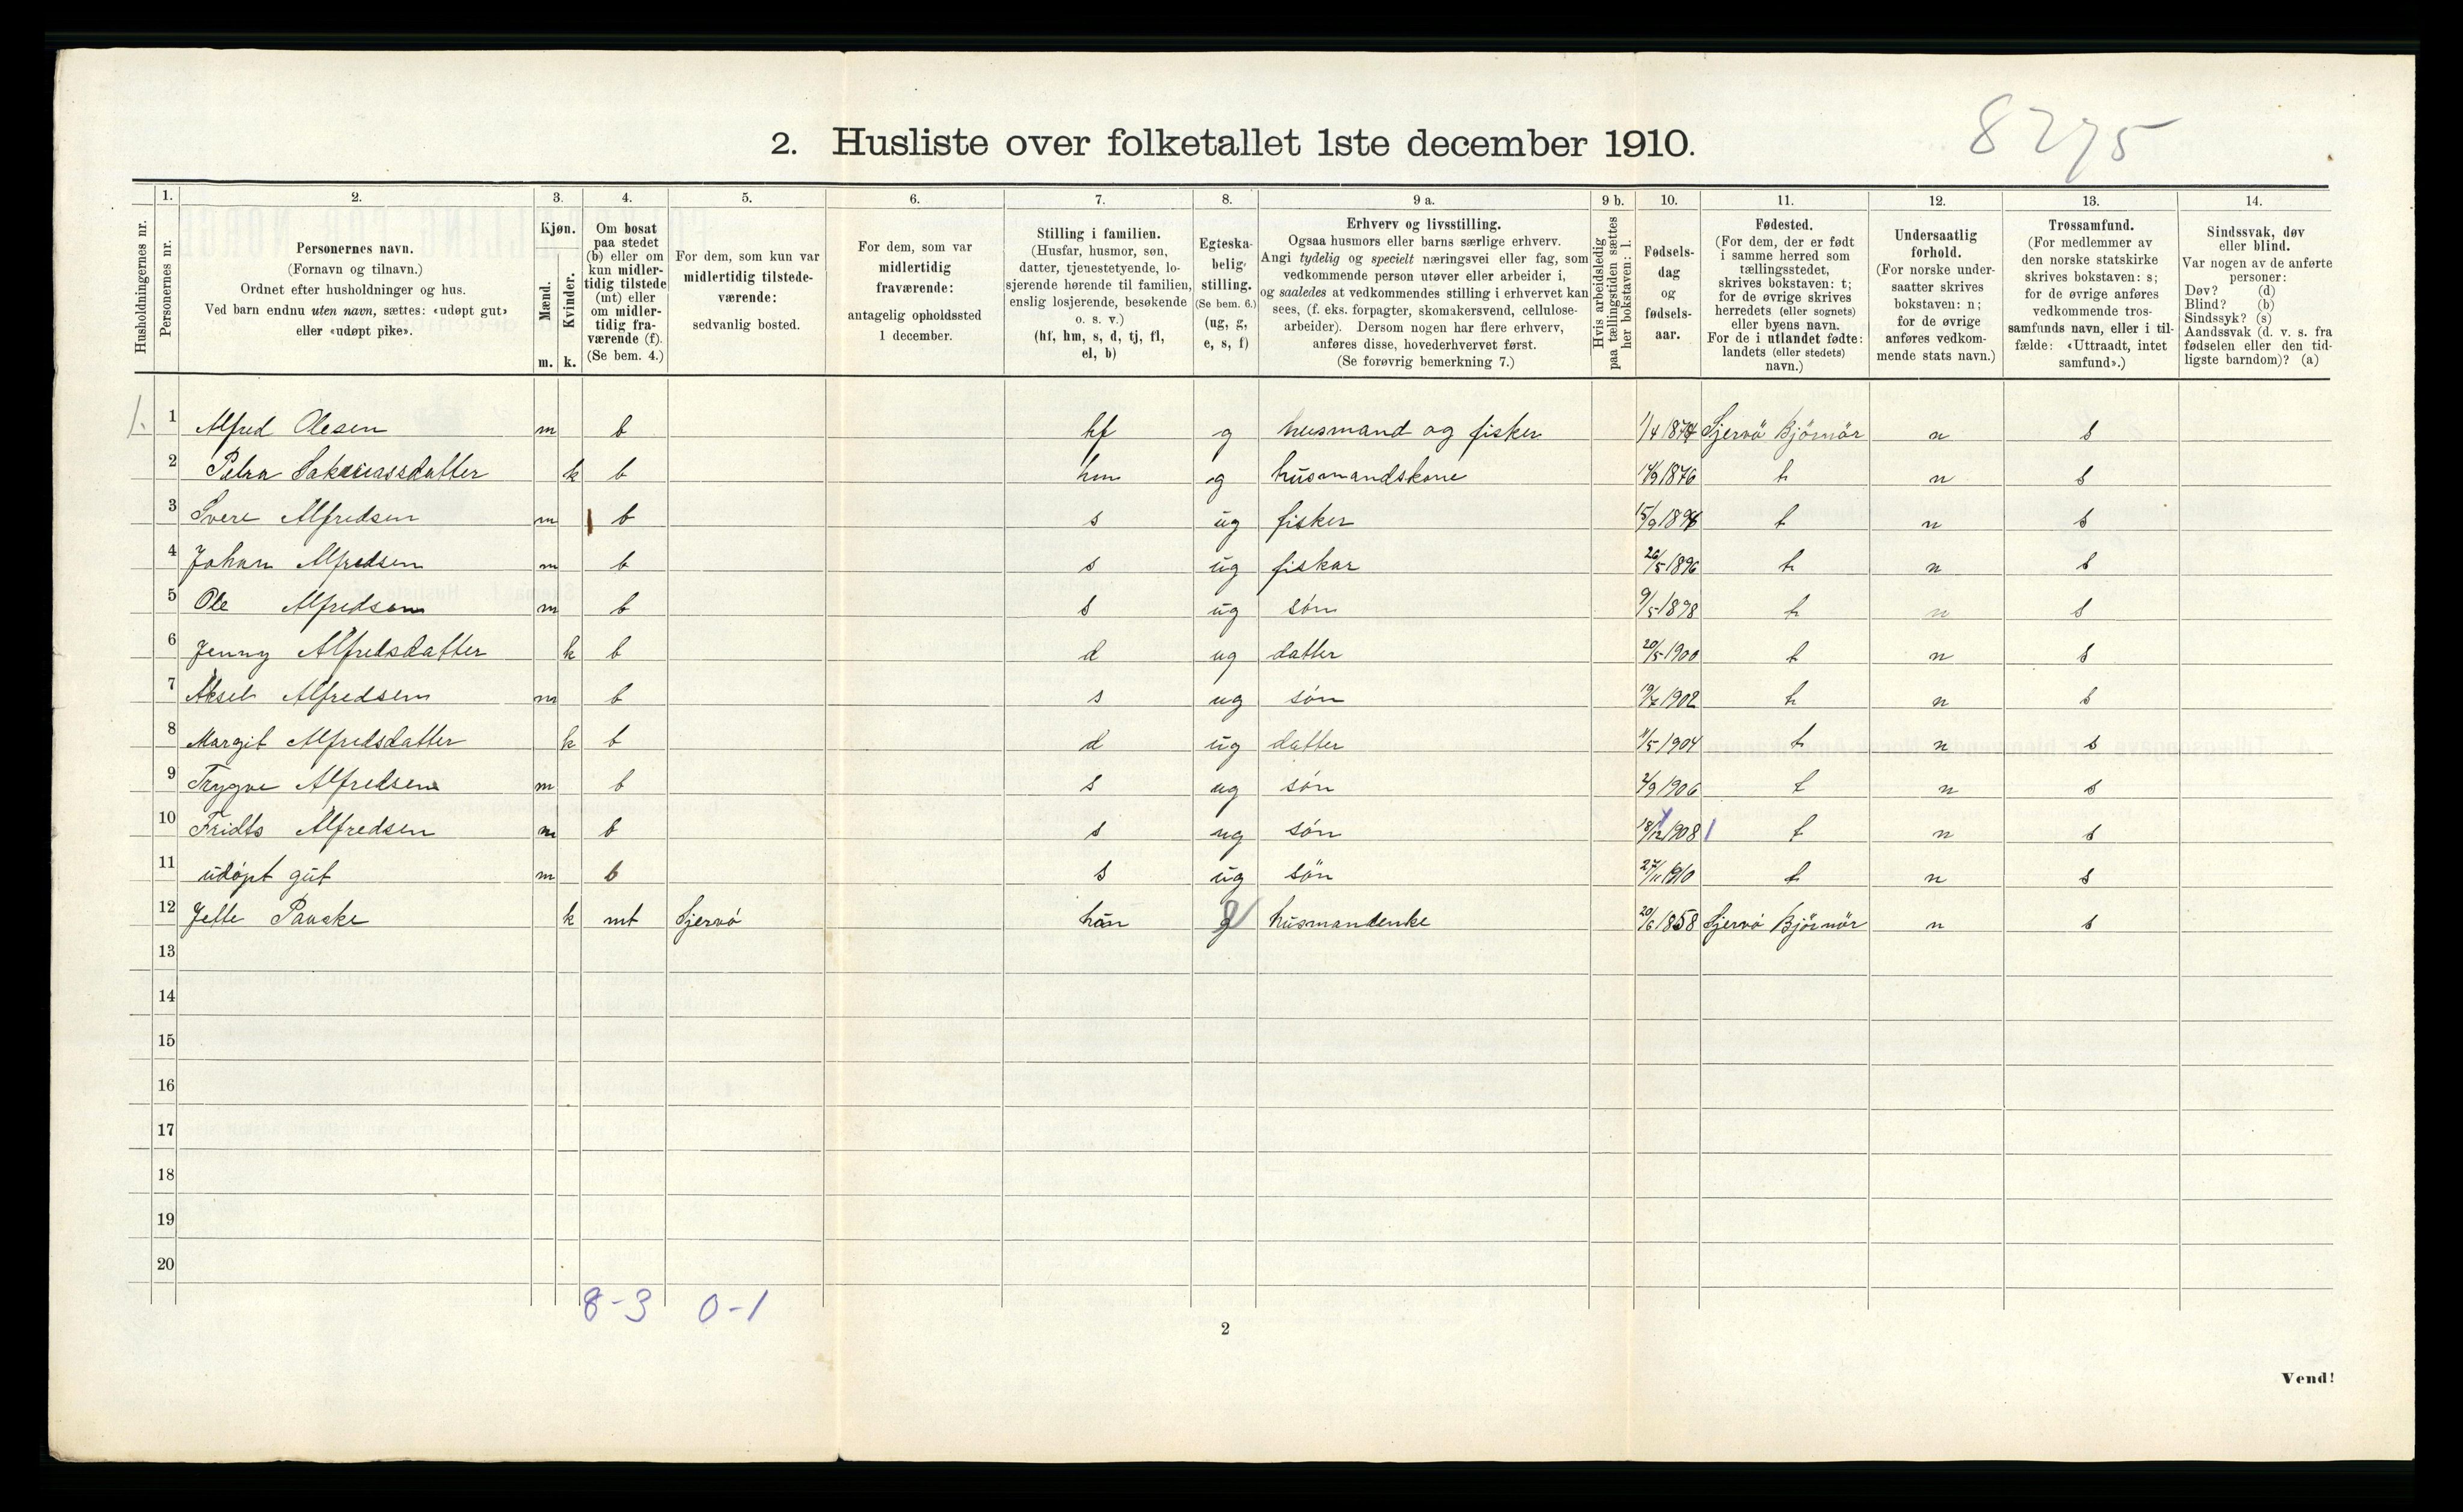 8275
2. Husliste over folketallet 1ste december 1910.
1. 2. 3. 4. 5. 6. 7. 8. 9 a. 9 b. 10. 11. 12. 13. 14.
Husholdningernes nr.
Personernes nr.
Personernes navn.
(Fornavn og tilnavn.)
Ordnet efter husholdninger og hus.
Ved barn endnu uten navn, sættes: «udøpt gut»
eller «udøpt pike».
Kjøn.
Mænd.
m.
Kvinder.
k.
Om bosat
paa stedet
(b) eller om
kun midler-
tidig tilstede
(mt) eller
om midler-
tidig fra-
værende (f).
(Se bem. 4.)
For dem, som kun var
midlertidig tilstede-
værende:
sedvanlig bosted.
For dem, som var
midlertidig
fraværende:
antagelig opholdssted
1 december.
Stilling i familien.
(Husfar, husmor, søn,
datter, tjenestetyende, lo-
sjerende hørende til familien,
enslig losjerende, besøkende
o. s. v.)
(hf, hm, s, d, tj, fl,
el, b)
Egteska-
belig
stilling.
(Se bem. 6.)
(ug, g,
e, s, f)
Erhverv og livsstilling.
Ogsaa husmors eller barns særlige erhverv.
Angi tydelig og specielt næringsvei eller fag, som
vedkommende person utøver eller arbeider i,
og saaledes at vedkommendes stilling i erhvervet kan
sees, (f. eks. forpagter, skomakersvend, cellulose-
arbeider). Dersom nogen har flere erhverv,
anføres disse, hovederhvervet først.
(Se forøvrig bemerkning 7.)
Hvis arbeidsledig
paa tællingstiden sættes
her bokstaven: l.
Fødsels-
dag
og
fødsels-
aar.
Fødested.
(For dem, der er født
i samme herred som
tællingsstedet,
skrives bokstaven: t;
for de øvrige skrives
herredets (eller sognets)
eller byens navn.
For de i utlandet fødte:
landets (eller stedets)
navn.)
Undersaatlig
forhold.
(For norske under-
saatter skrives
bokstaven: n;
for de øvrige
anføres vedkom-
mende stats navn.)
Trossamfund.
(For medlemmer av
den norske statskirke
skrives bokstaven: s;
for de øvrige anføres
vedkommende tros-
samfunds navn, eller i til-
fælde: «Uttraadt, intet
samfund».)
Sindssvak, døv
eller blind.
Var nogen av de anførte
personer:
Døv? (d)
Blind? (b)
Sindssyk? (s)
Aandssvak (d. v. s. fra
fødselen eller den tid-
ligste barndom)? (a)
1. 1 Alfred Olesen m b hf g husmand og fisker 1/4 1874 Sjervö Björnör n s
2 Petra Sakariassdatter k b hm g husmandskone 14/9 1876 t n s
3 Svere Alfredsen m b s ug fisker 15/9 1894 t n s
4 Johan Alfredsen m b s ug fisker 26/5 1896 t n s
5 Ole Alfredsen m b s ug sön 9/5 1898 t n s
6 Jenny Alfredsdatter k b d ug datter 20/5 1900 t n s
7 Aksel Alfredsen m b s ug sön 19/7 1902 t n s
8 Margit Alfredsdatter k b d ug datter 11/5 1904 t n s
9 Trygve Alfredsen m b s ug sön 2/9 1906 t n s
10 Fridts Alfredsen m b s ug sön 18/12 1908 t n s
11 udöpt gut m b s ug sön 27/11 1910 t n s
12 Jette Pauske k mt Sjervö g husmandenke 20/6 1858 Sjervö Björnör n s
13
14
15
16
17
18
19
20
8-3 0-1
2
Vend!